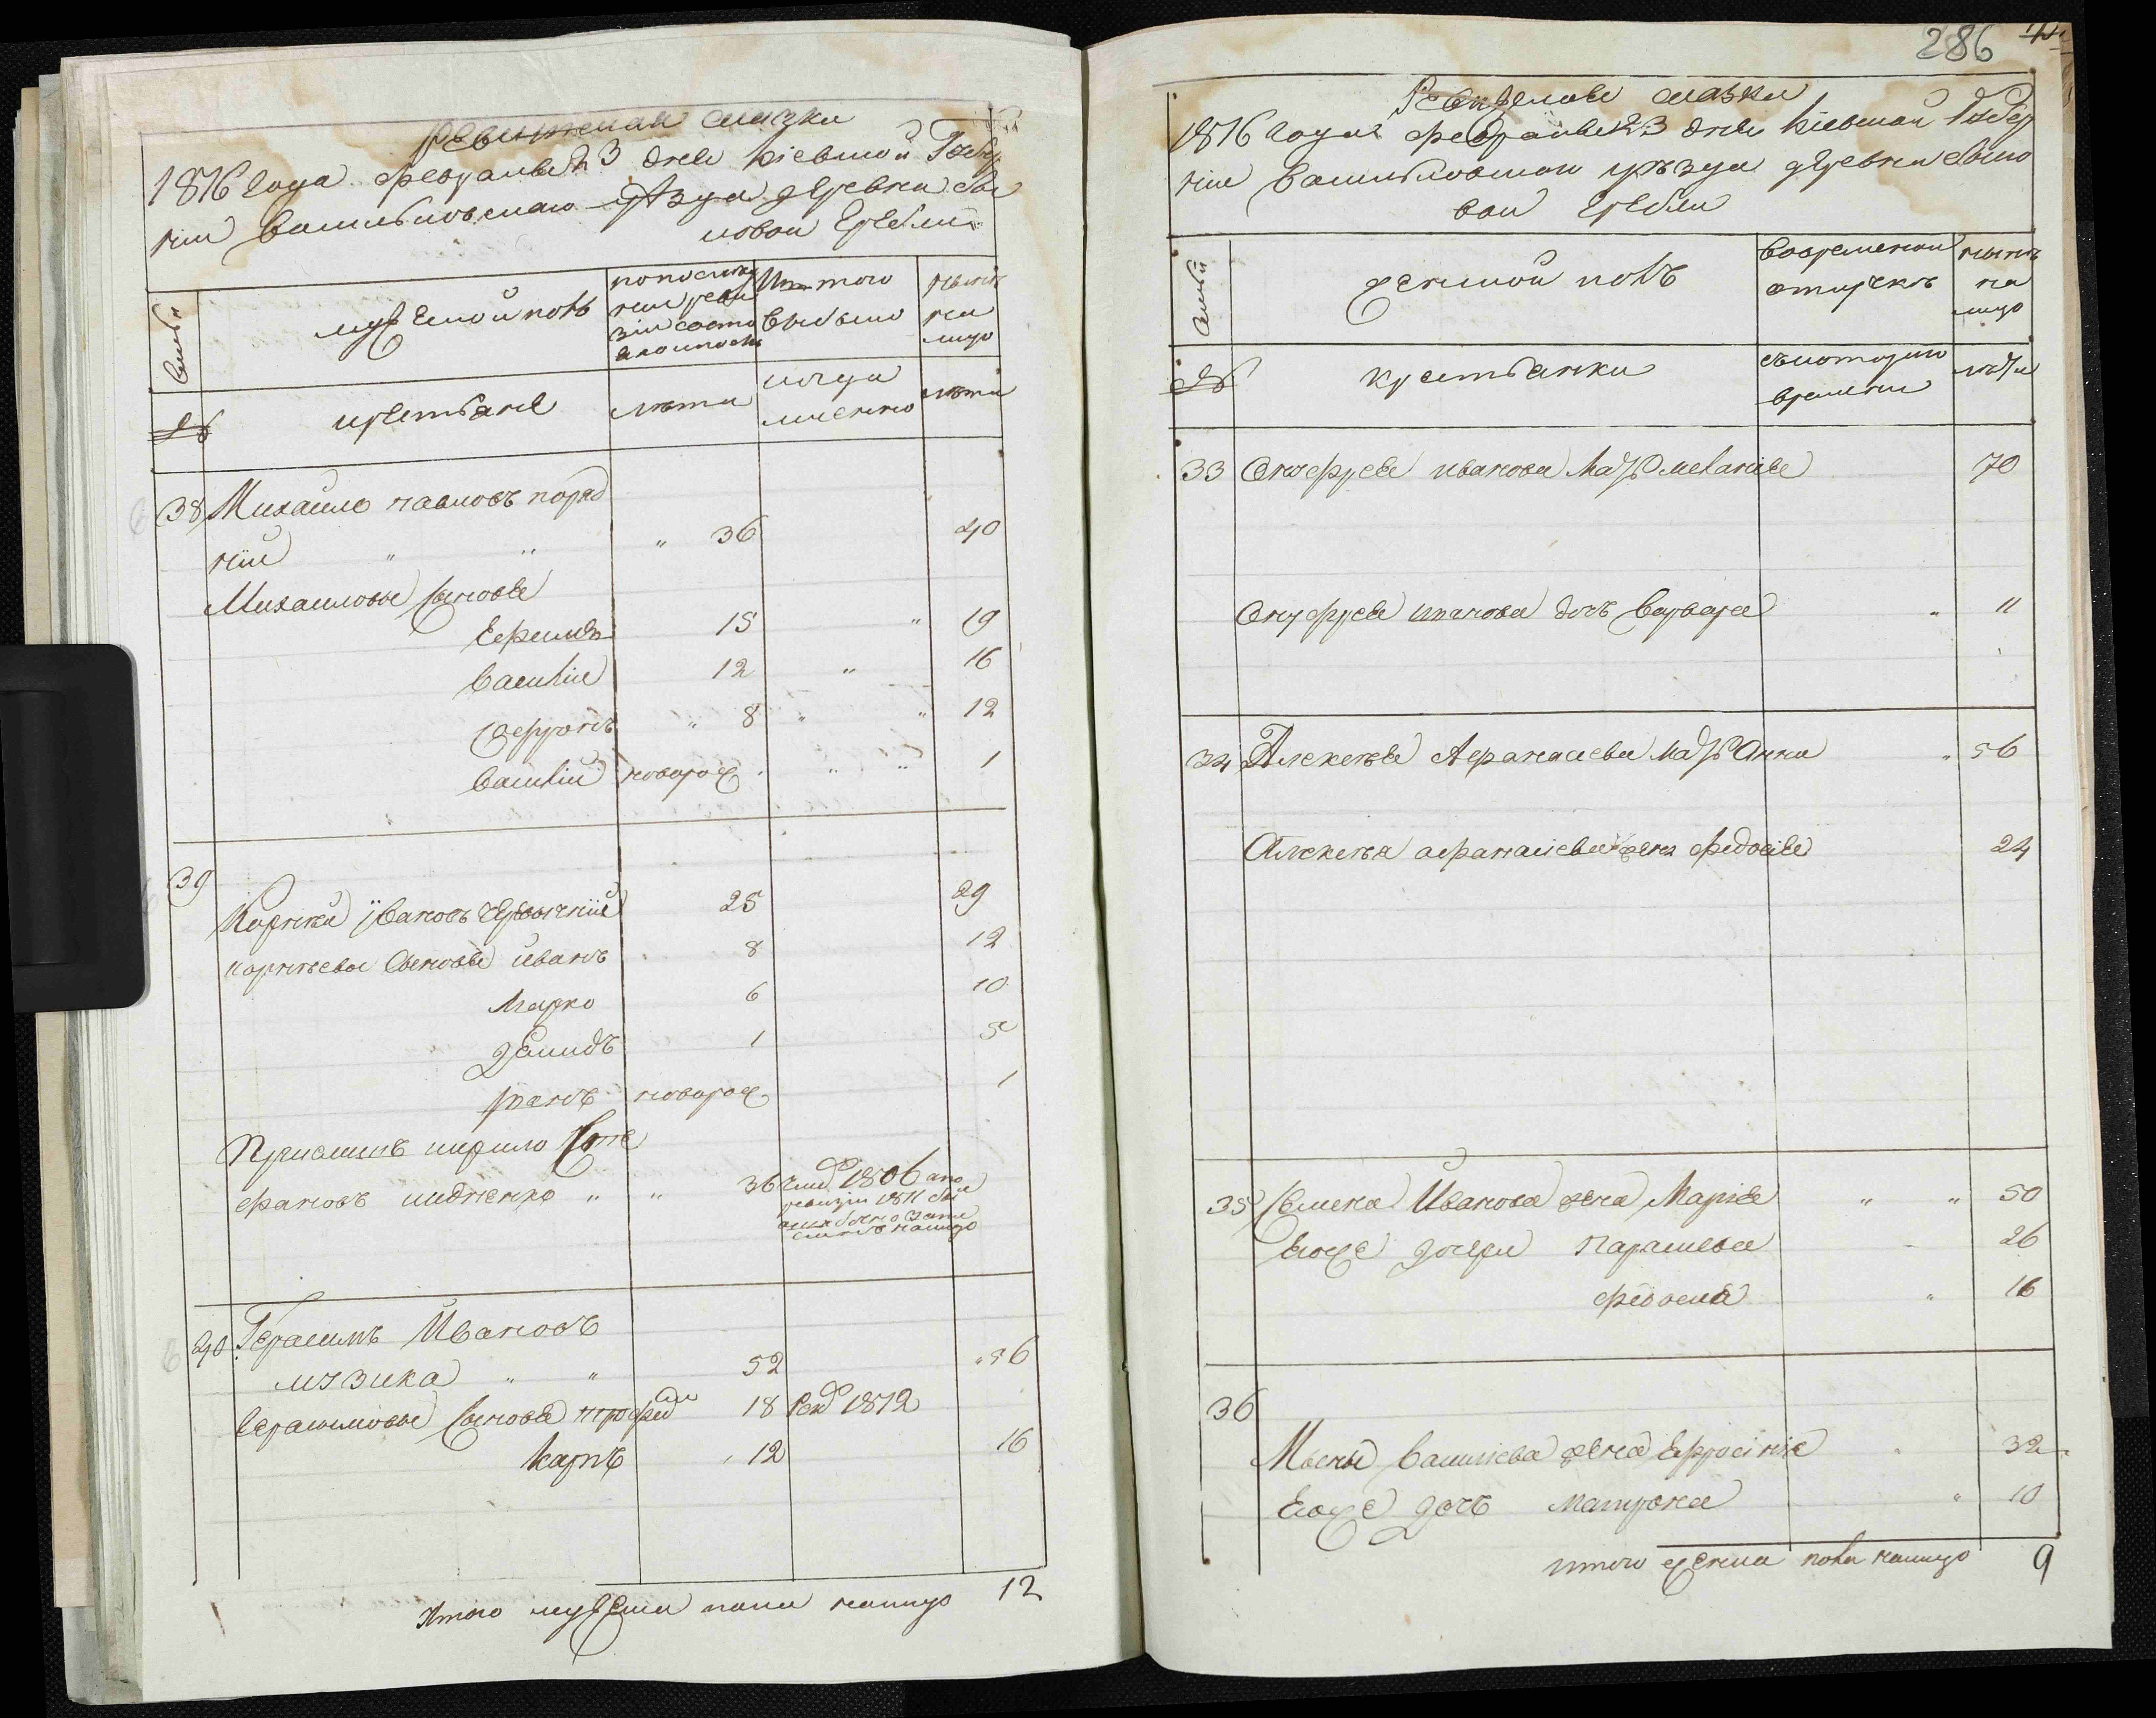 Ревизская сказка
1816 года февраля 23 дня Кіевской Губер
ніи Васильковскаго уѣзда деревни
новой Гребли
Семьи
мужеской полъ
по последней ревизіи состояло
Изъ того выбыло
нынѣ на лицо
№
крестьяне
лѣта
когда именно
лѣта
38 Михайло павловъ поряд
ній " " " 36 40
Михайловы сыновья
Ефимъ 15 " 19
Василій 12 " 16
" 8 " " 12
Василій новорож. " " 1
39
Корнѣй Ивановъ 25 29
корнѣевы сыновья иванъ 8 12
Марко 6 10
Демидъ 1 5
романъ новорож 1
Приемишъ кирило Сте
фановъ " " 36 1806 а по
ревизіи 1811
40 Герасимъ Ивановъ
музика " " 52 " 56
Герасимовы сыновья трофим 18 1812
Карпъ " 12 16
Итого мужеска пола налицо 12
286
Ревизская сказка
1816 года февраля 23 дня Кіевской Губер
ніи Васильковскаго уѣзда деревни
вой Гребли
Семьи
женской полъ
Во временной отлучкѣ
нынѣ на лицо
№
крестьянки
съ которого времени
лѣта
33 Онуфрея иванова Мать меланія 70
Онуфрея иванова дочь Варвара " 11
34 Алексѣя Афанасиева Мать Анна " 56
Алексѣя афанасіева жена федосія 24
35 Семена Иванова жена Марія " " 50
Егоже дочери Параскева 26
федосия " 16
36
Василіева жена Ефросинія " 32
Егоже дочь матрона " 10
итого женска пола налицо 9